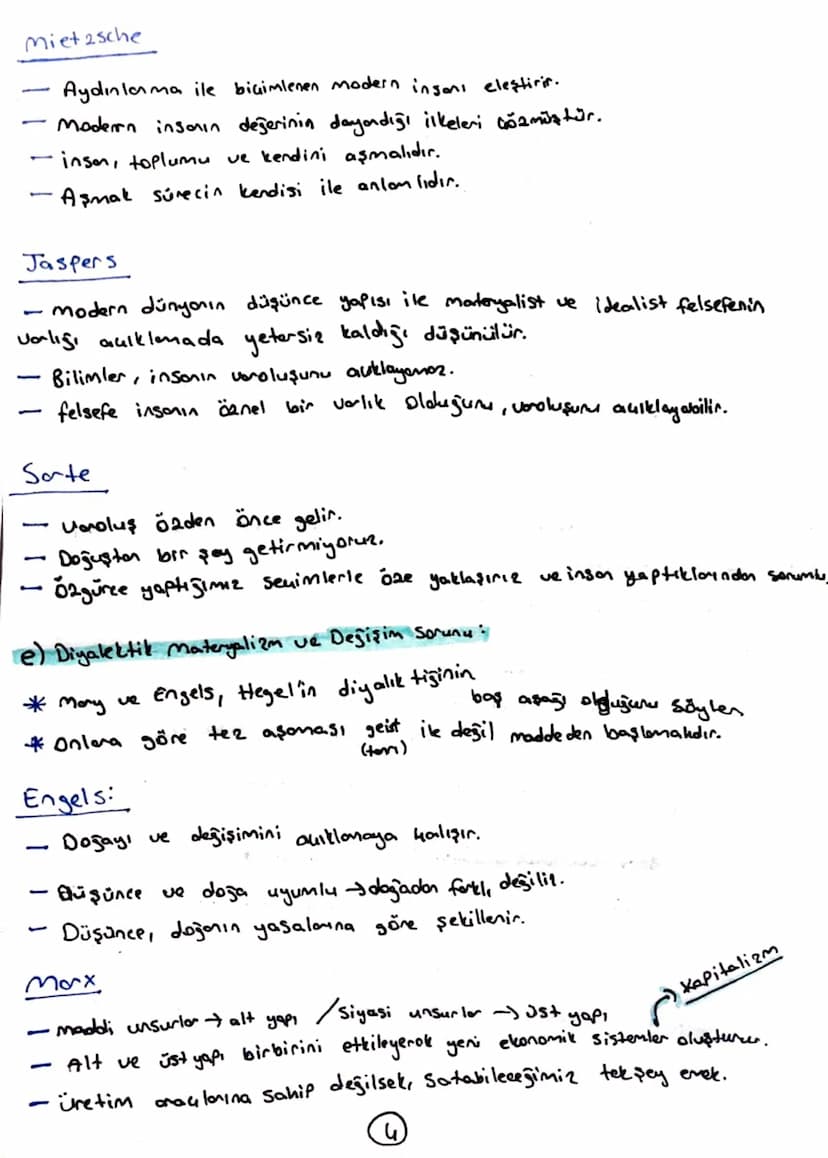 Nietzsche
— Aydınlanma ile biçimlenen modern insanı eleştirir.
— Modern insanın değerinin dayandığı ilkeleri çözmüştür.
— insan, toplumu ve kendini aşmalıdır.
— Aşmak sürecin kendisi ile anlamlıdır.
Jaspers
— modern dünyanın düşünce yapısı ile materyalist ve idealist felsefenin
varlığı açıklamada yetersiz kaldığı düşünülür.
— Bilimler, insanın varoluşunu açıklayamaz.
— felsefe insanın öznel bir varlık olduğunu, varoluşunu açıklayabilir.
Sarte
— varoluş özden önce gelir.
— Doğuştan bir şey getirmiyoruz.
— Özgürce yaptığımız seçimlerle öze yaklaşırız ve insan yaptıklarından sorumlu
e) Diyalektik Materyalizm ve Değişim Sorunu:
* Marx ve Engels, Hegel'in diyalıktiğinin baş aşağı olduğunu söyler
* Onlara göre tez aşaması geist ile değil maddeden başlamalıdır.
(tanrı)
Engels:
— Doğayı ve değişimini açıklamaya çalışır.
— Düşünce ve doğa uyumlu → doğadan farklı değiliz.
— Düşünce, doğanın yasalarına göre şekillenir.
Marx
— maddi unsurlar → alt yapı / Siyasi unsurlar → üst yapı
kapitalizm
— Alt ve üst yapı birbirini etkileyerek yeni ekonomik sistemler oluşturur.
— üretim araçlarına sahip değilsek, satabileceğimiz tek şey emek.
4